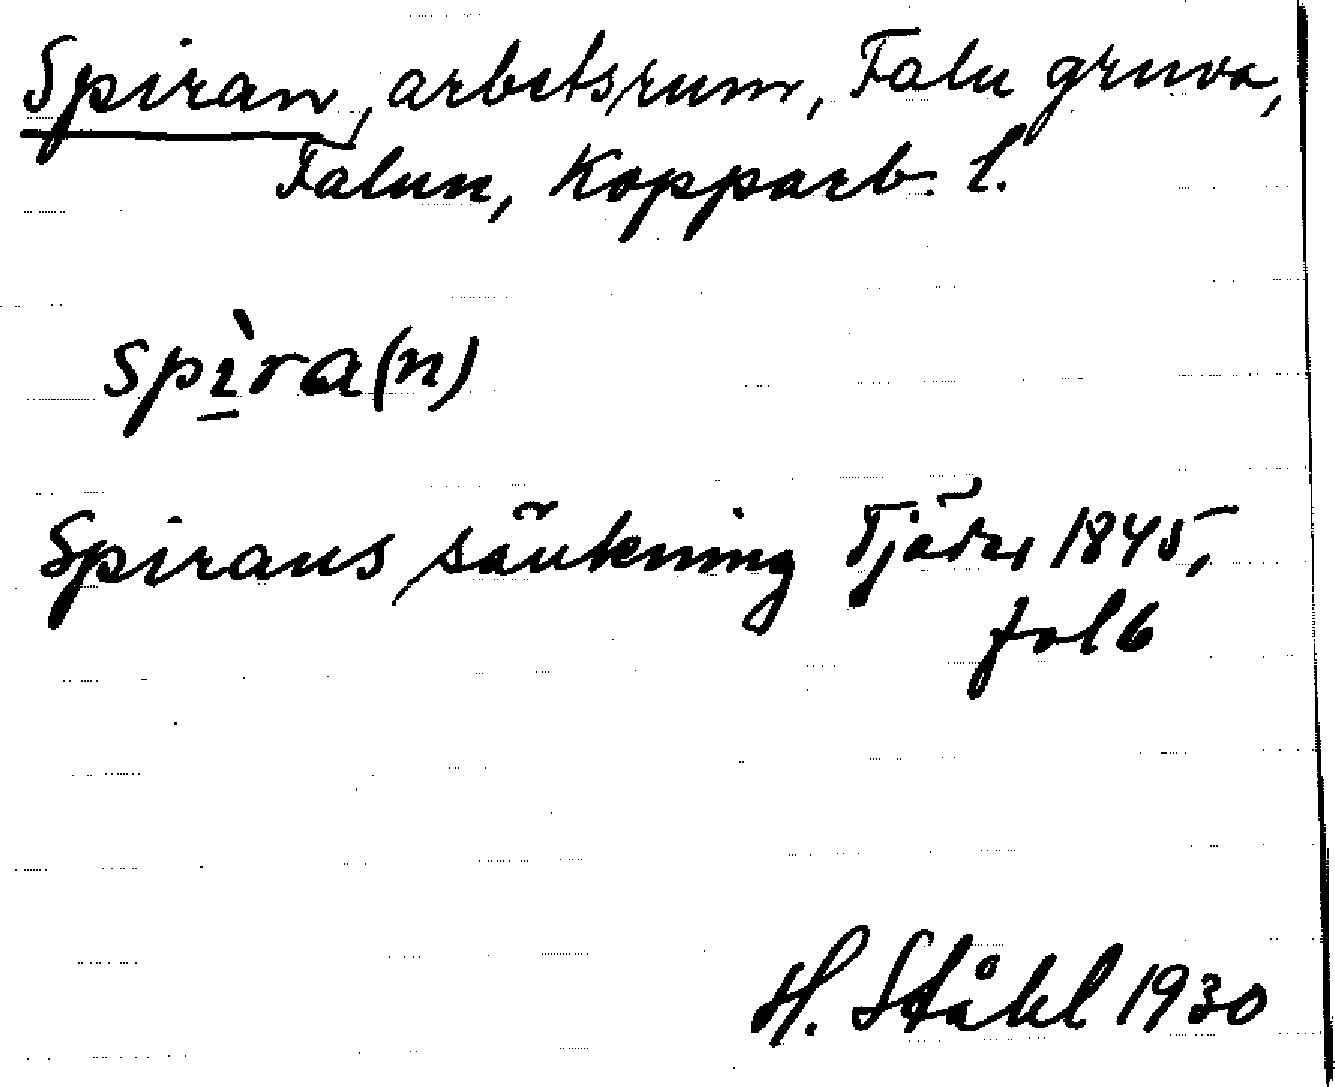 Spiran, arbetsrum, Falu gruva,
Falun, Kopparb. l.
spì̲ra(n)
Spirans sänkning Tjäder 1845,
fol 6
H. Ståhl 1930